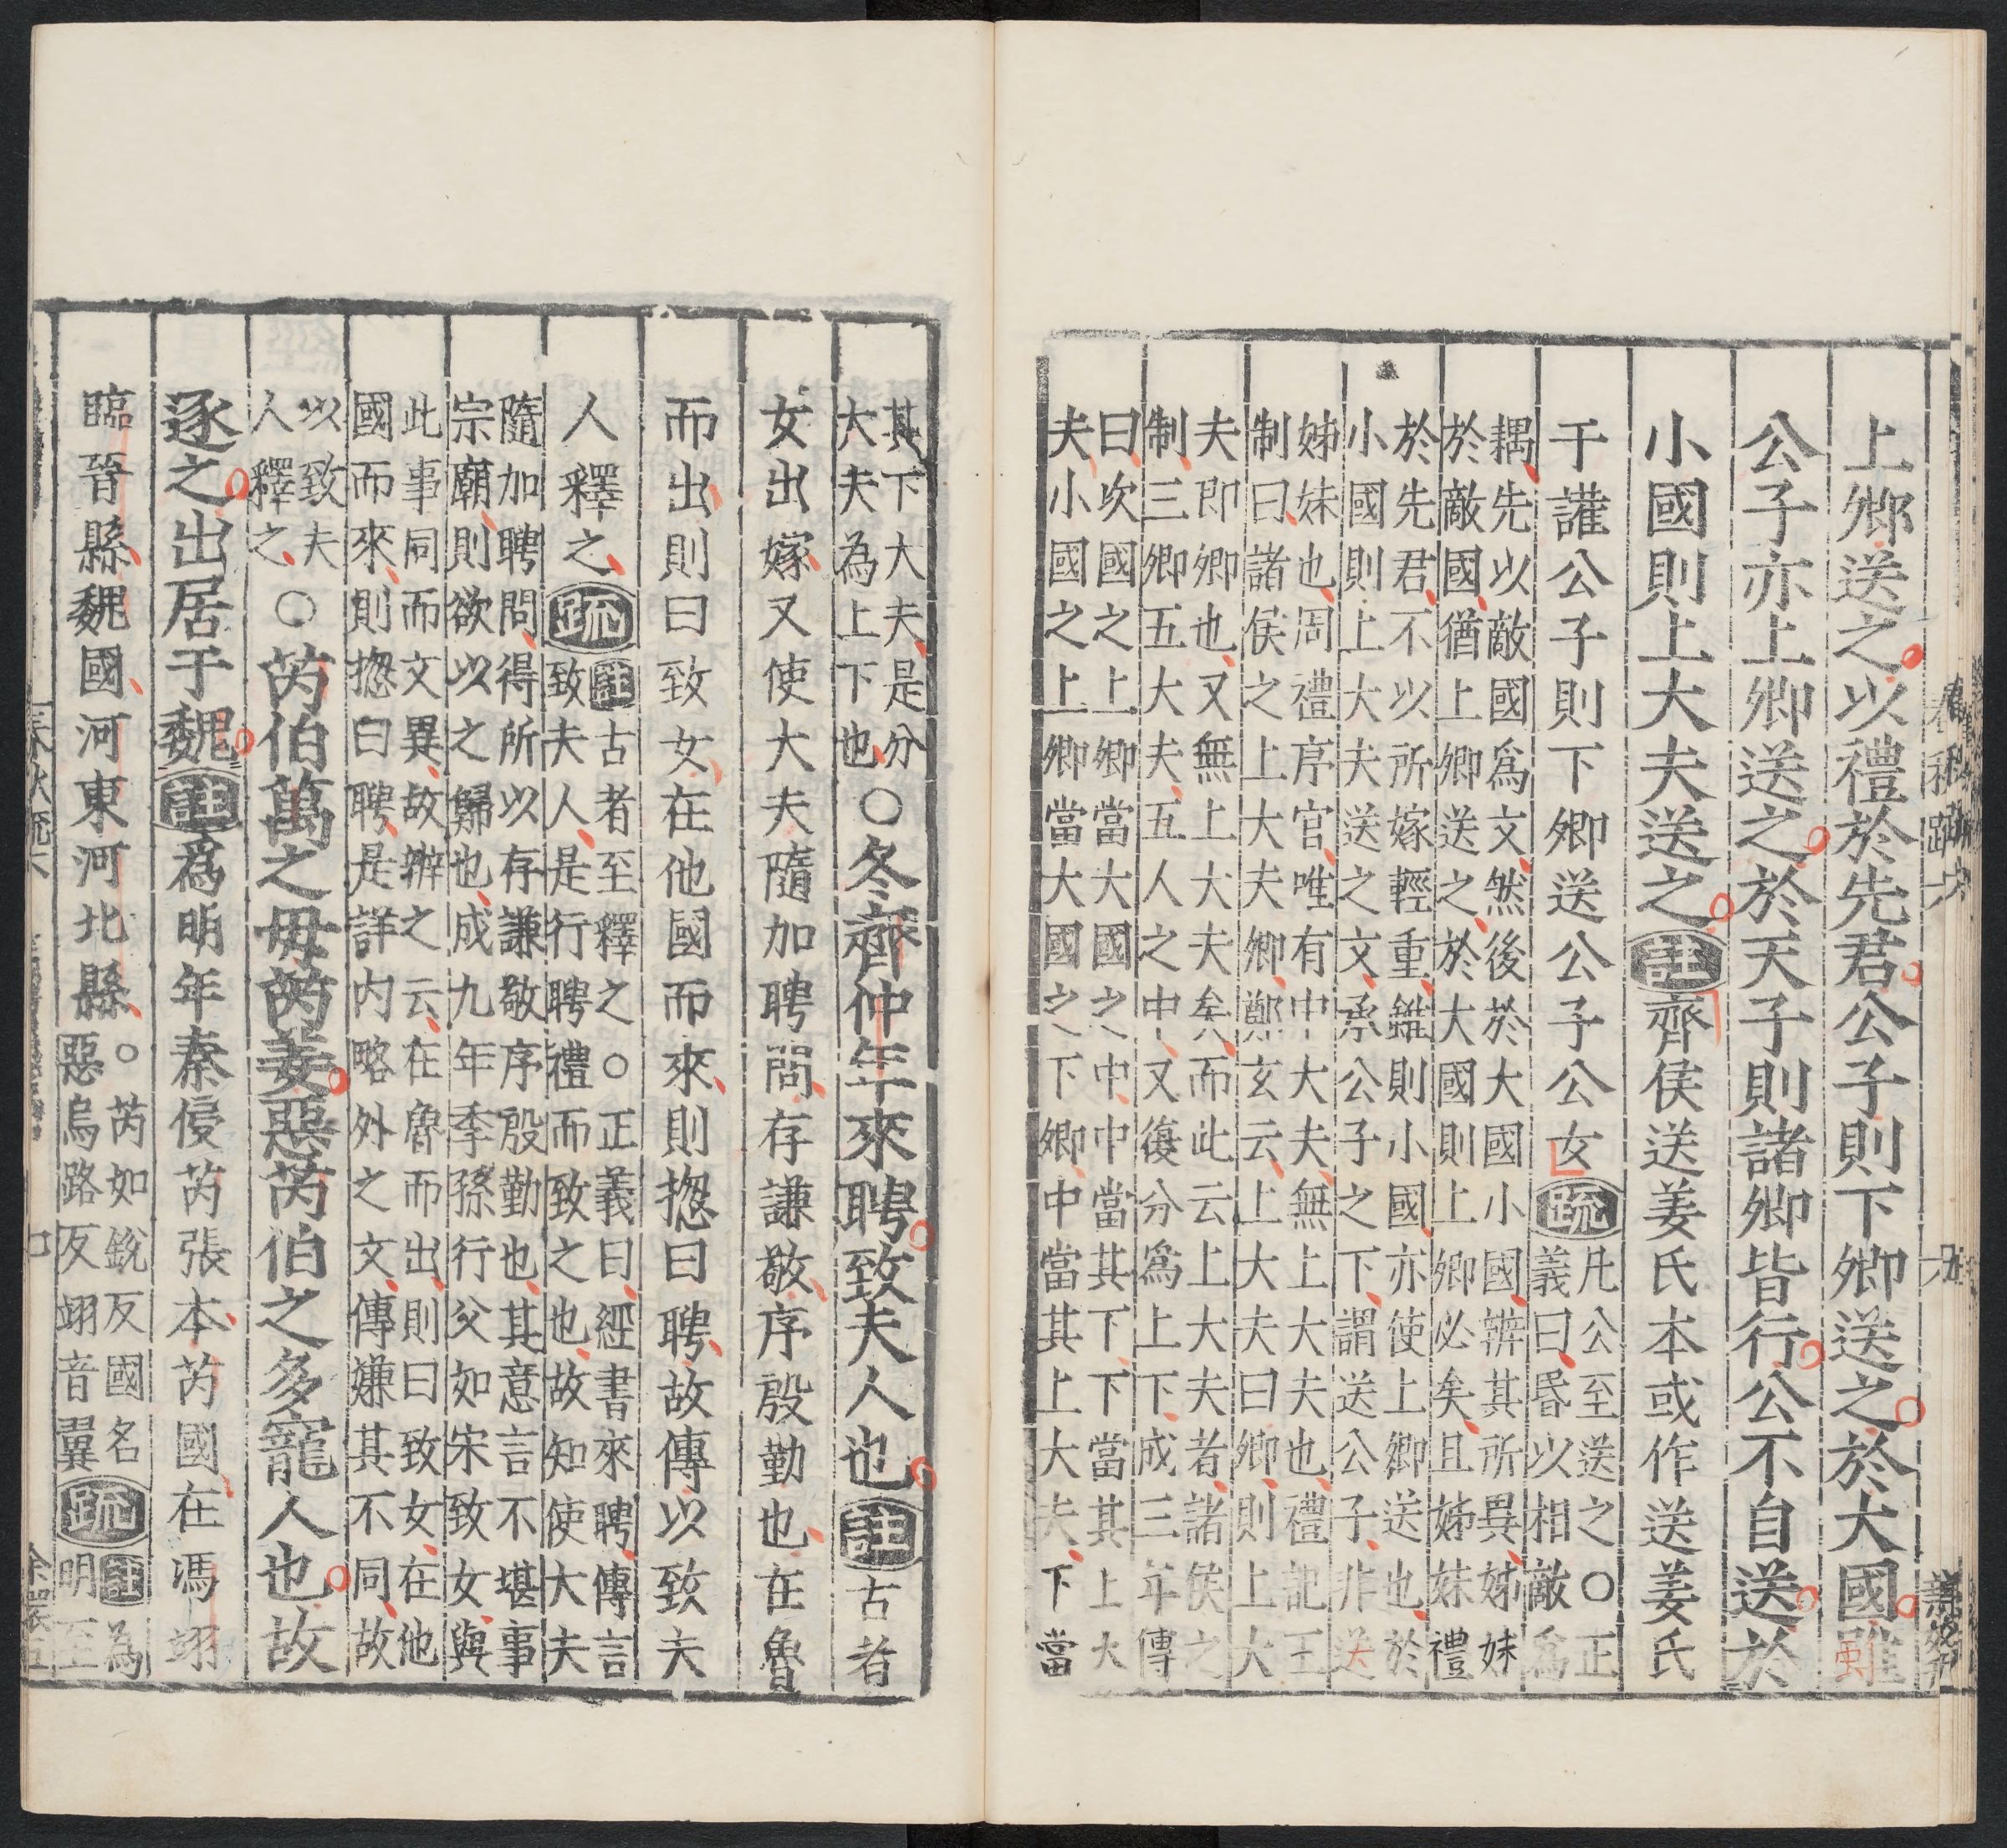 上卿送之以禮於先君公子則下卿送之於大國雖
公子亦上卿送之於天子則諸卿皆行公不自送於
小國則上大夫送之註齊侯送姜氏本或作送姜氏
于讙公子則下卿送公子公女疏
凡公至送之○正
義曰昏以相敵為
耦先以敵國為文然後於大國小國辨其所異姊妹
於敵國猶上卿送之於大國則上卿必矣且姊妹禮
於先君不以所嫁輕重雖則小國亦使上卿送也於
小國則上大夫送之文承公子之下謂送公子非送
姊妹也周禮序官唯有中大夫無上大夫也禮記王
制曰諸侯之上大夫卿鄭玄云上大夫曰卿則上大
夫即卿也又無上大夫矣而此云上大夫者諸侯之
制三卿五大夫五人之中又復分為上下成三年傳
曰次國之上卿當大國之中中當其下下當其上大
夫小國之上卿當大國之下卿中當其上大夫下當
其下大夫是分
大夫為上下也
○冬齊仲年來聘致夫人也註古者
女出嫁又使大夫隨加聘問存謙敬序殷勤也在魯
而出則曰致女在他國而來則揔曰聘故傳以致夫
人釋之疏
註古者至釋之○正義曰經書來聘傳言
致夫人是行聘禮而致之也故知使大夫
隨加聘問得所以存謙敬序殷勤也其意言不堪事
宗廟則欲以之歸也成九年季孫行父如宋致女與
此事同而文異故辨之云在魯而出則曰致女在他
國而來則揔曰聘是詳內略外之文傳嫌其不同故
以致夫
人釋之
○芮伯萬之毋芮姜惡芮伯之多寵人也故
逐之出居于魏註為明年秦侵芮張本芮國在馮翊
臨晉縣魏國河東河北縣
○芮如銳反國名
惡烏路反翊音翼
疏
註為
明至